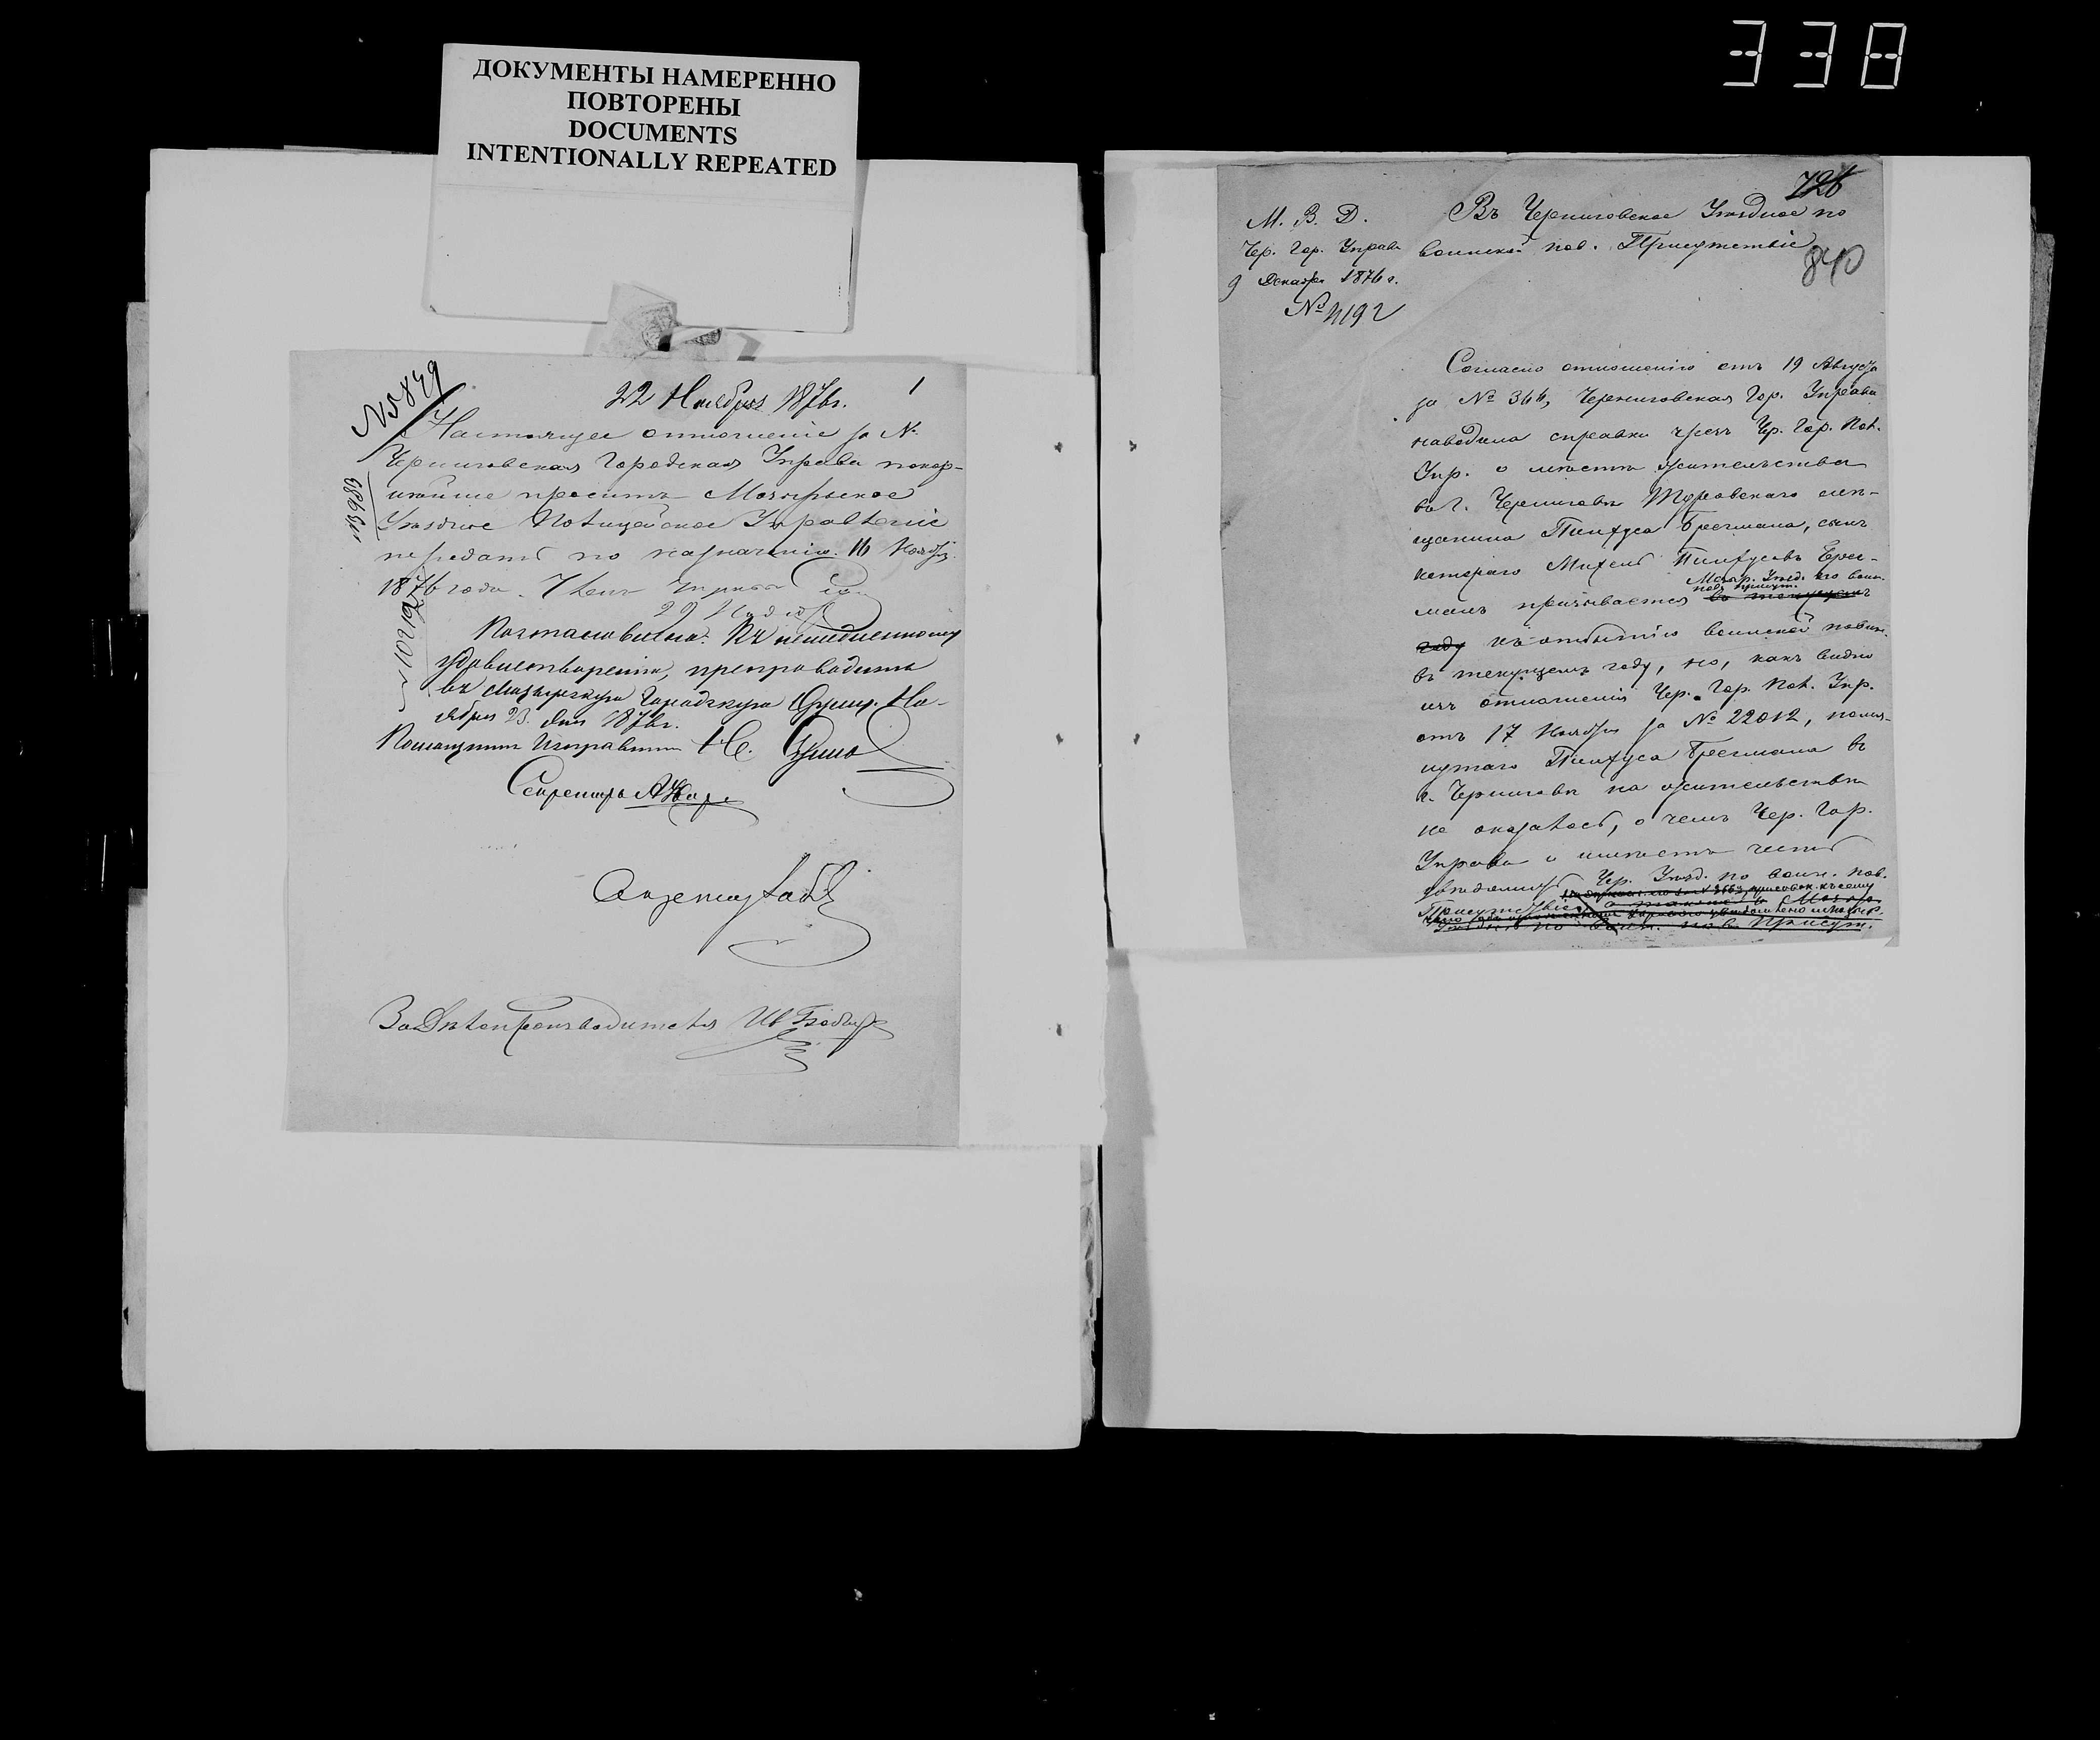 338
ДОКУМЕНТЫ НАМЕРЕННО
ПОВТОРЕНЫ
DOCUMENTS
INTENTIONALLY REPEATED
№ 5849
22 Ноября 1876г.
1
Настоящее отношение за №
Черниговская Городская Управа покор-
нѣйше проситъ Мозырьское
Уѣздное Полицейское Управленіе
передать по назначенію. 16 Ноября
1876 года. Членъ Управы
Постановили: Къ немедленному
удовлетворенію, препроводить
въ Мозырскую Городскую Думу. Но-
ября 23 дня 1876г.
Помощникъ Исправника
Секретарь
За Дѣлопроизводителя Ив
726
840
М. В. Д.
Чер. Гор. Управа
9 Декабря 1876 г.
№ 4192
Въ Черниговское Уѣздное по
воинской пов. Присутствіе
Согласно отношенію отъ 19 Августа
за № 366, Черниговская Гор. Управа
наводила справки чрезъ Чер. Гор. Пол.
Упр. о мѣстѣ жительства
въ г. Черниговѣ Туровскаго мѣ-
щанина Пинхуса Брегмана, сынъ
котораго Михель Пинхусовъ Брег-
Мозыр. Уѣзд. по воин.
пов. присут.
манъ призывается въ текущемъ
году къ отбытію воинской повин.
въ текущемъ году, но, какъ видно
изъ отношенія Чер. Гор. Пол. Упр.
отъ 17 Ноября за № 22012, помя-
нутаго Пинхуса Брегмана въ
г. Черниговѣ на жительствѣ
не оказалось, о чемъ Чер. Гор.
Управа и имѣетъ честь
увѣдомить Чер. Уѣзд. по воин. пов.
Присутствіе
Уѣздное по воин. пов. Присут.